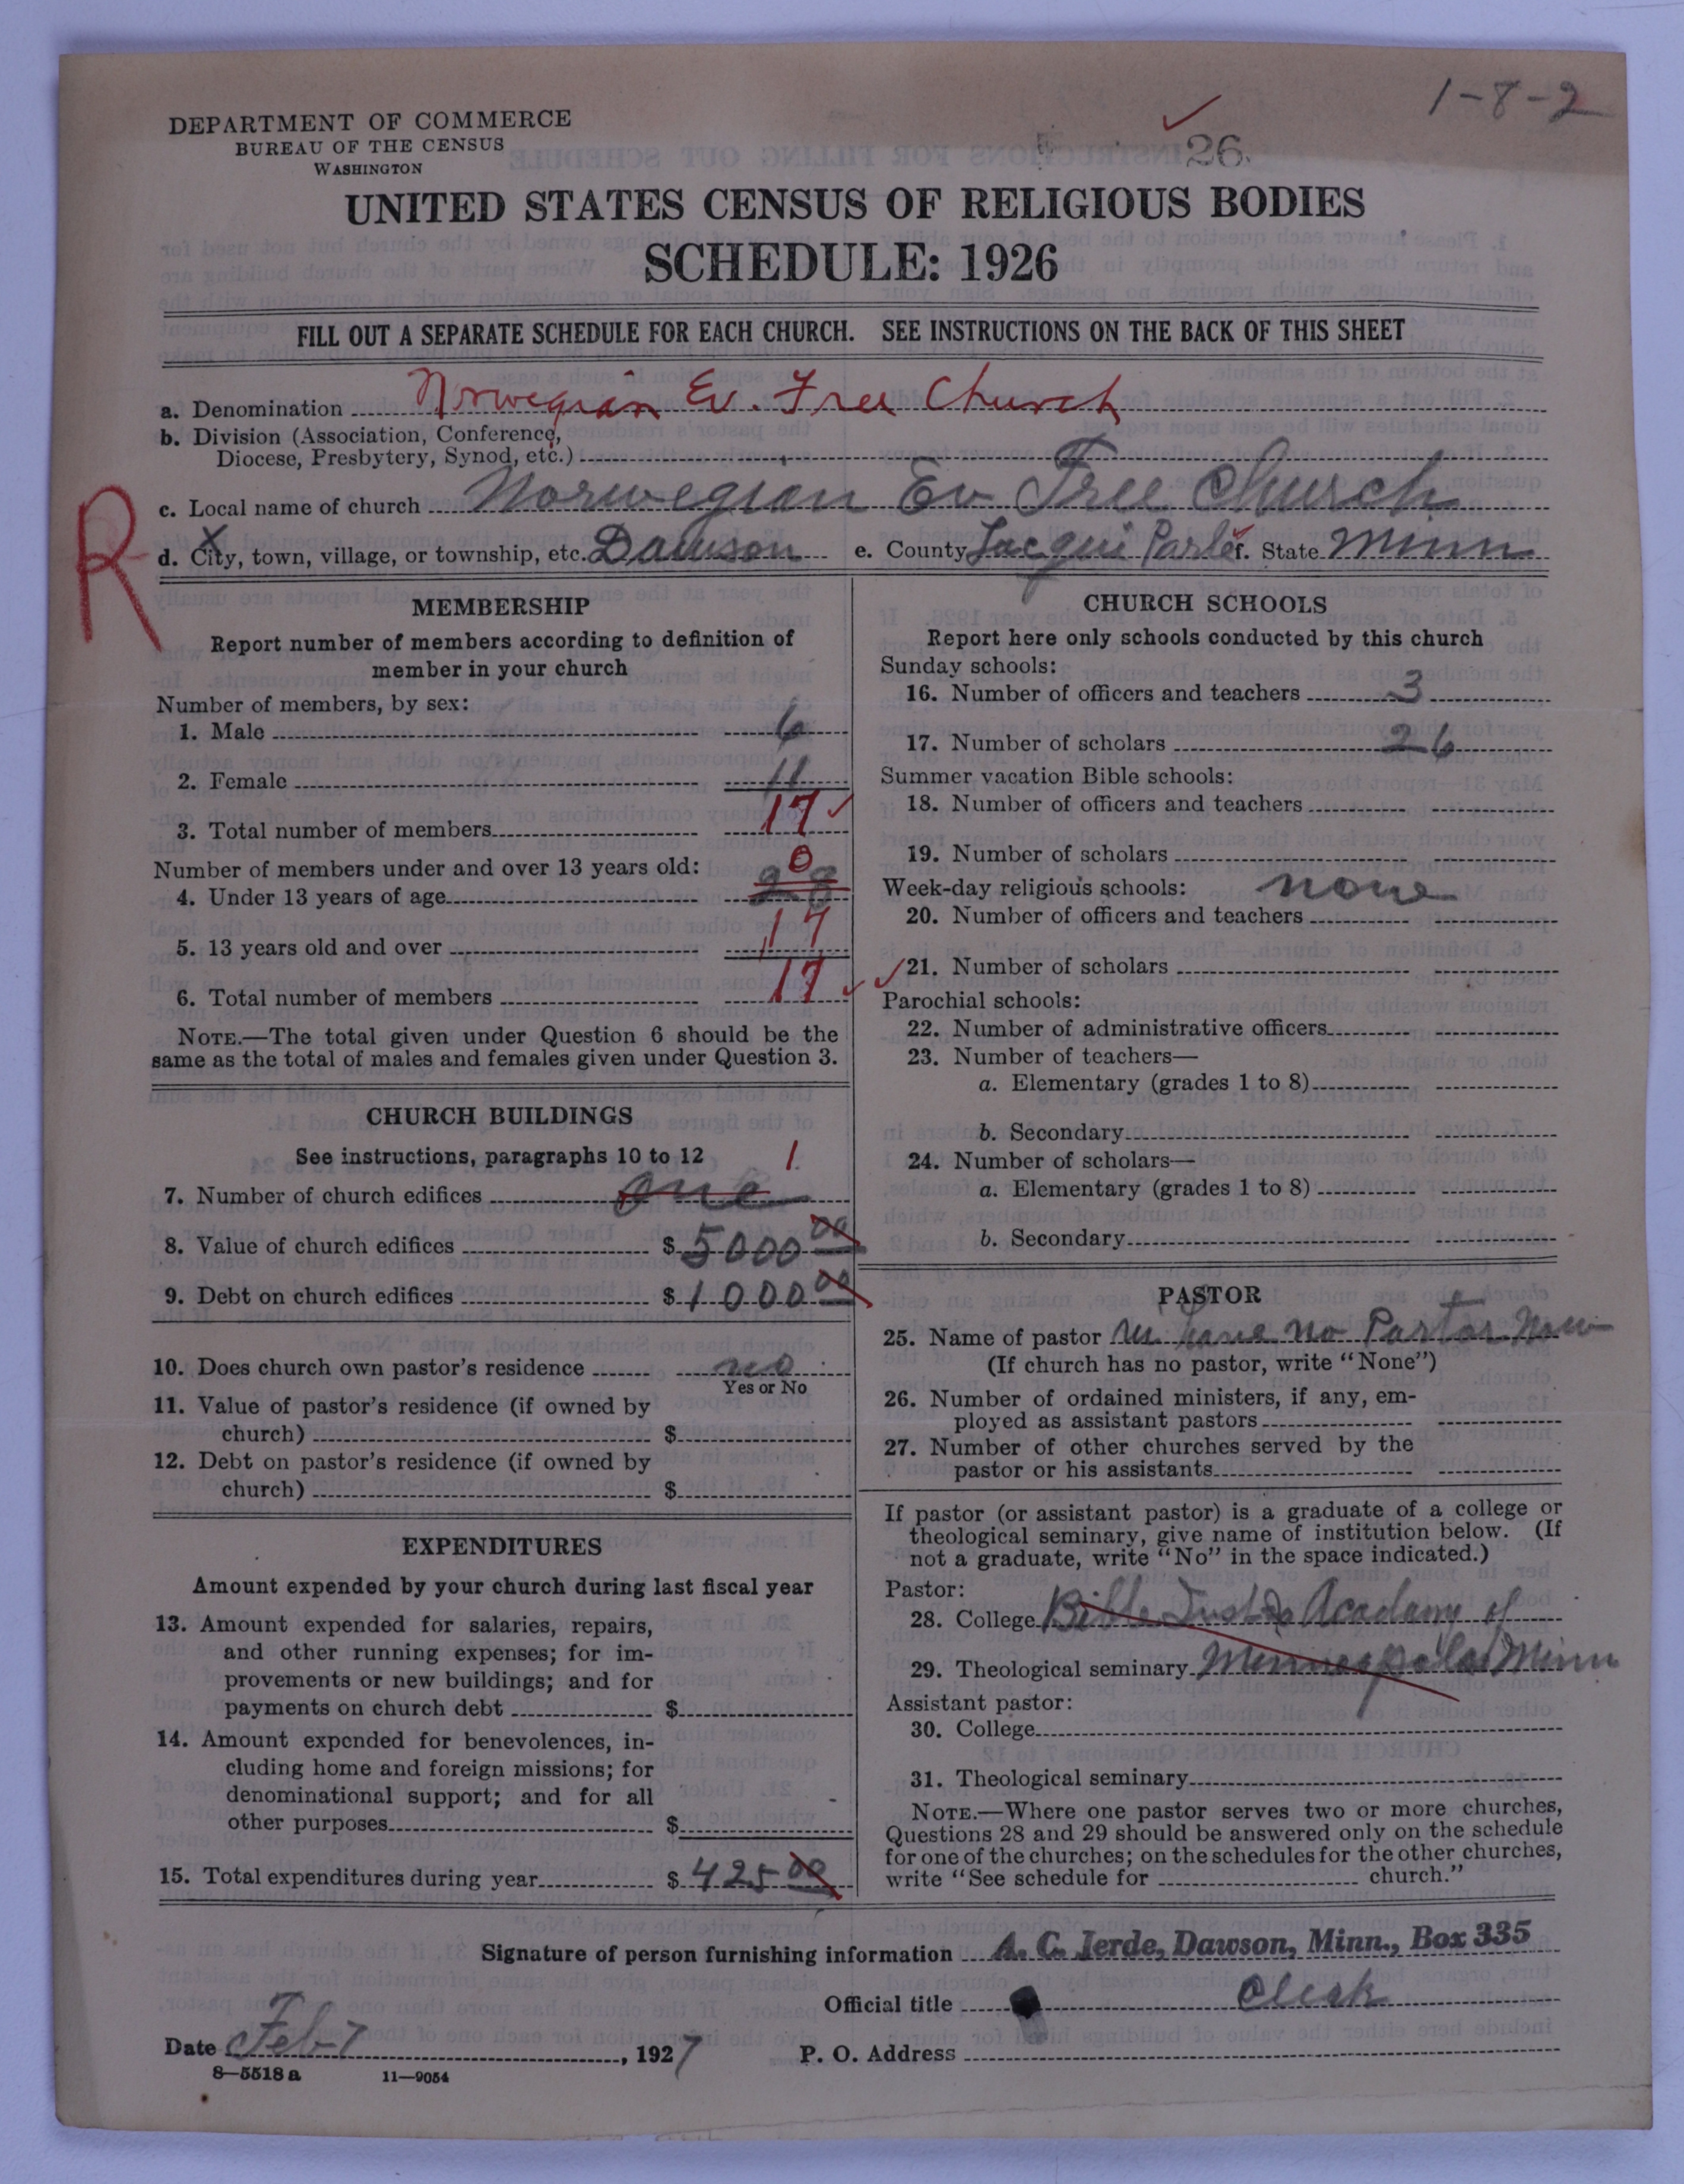 1-8-2
DEPARTMENT OF COMMERCE
BUREAU OF THE CENSUS
WASHINGTON
26.
UNITED STATES CENSUS OF RELIGIOUS BODIES
SCHEDULE: 1926
FILL OUT A SEPARATE SCHEDULE FOR EACH CHURCH. SEE INSTRUCTIONS ON THE BACK OF THIS SHEET
a. Denomination Norwegian Ev. Free Church
b. Division (Association, Conference,
Diocese, Presbytery, Synod, etc.)
c. Local name of church Norwegian Ev Free Church
R
d. City, town, village, or township, etc. Dawson e. County Lac qui Parle f. State Minn
MEMBERSHIP
Report number of members according to definition of
member in your church
Number of members, by sex:
1. Male 6
2. Female 11
3. Total number of members 17
Number of members under and over 13 years old: 0
4. Under 13 years of age 28
5. 13 years old and over 17
6. Total number of members 17
NOTE.—The total given under Question 6 should be the
same as the total of males and females given under Question 3.
CHURCH BUILDINGS
See instructions, paragraphs 10 to 12 1
7. Number of church edifices one
8. Value of church edifices $ 5000 00
9. Debt on church edifices $ 1000 00
10. Does church own pastor's residence no
Yes or No
11. Value of pastor's residence (if owned by
church) $
12. Debt on pastor's residence (if owned by
church) $
EXPENDITURES
Amount expended by your church during last fiscal year
13. Amount expended for salaries, repairs,
and other running expenses; for im-
provements or new buildings; and for
payments on church debt $
14. Amount expended for benevolences, in-
cluding home and foreign missions; for
denominational support; and for all
other purposes $
15. Total expenditures during year $ 425 00
CHURCH SCHOOLS
Report here only schools conducted by this church
Sunday schools:
16. Number of officers and teachers 3
17. Number of scholars 26
Summer vacation Bible schools:
18. Number of officers and teachers
19. Number of scholars
Week-day religious schools: none
20. Number of officers and teachers
21. Number of scholars
Parochial schools:
22. Number of administrative officers
23. Number of teachers—
a. Elementary (grades 1 to 8)
b. Secondary
24. Number of scholars—
a. Elementary (grades 1 to 8)
b. Secondary
PASTOR
25. Name of pastor We have no Pastor Now
(If church has no pastor, write "None")
26. Number of ordained ministers, if any, em-
ployed as assistant pastors
27. Number of other churches served by the
pastor or his assistants
If pastor (or assistant pastor) is a graduate of a college or
theological seminary, give name of institution below. (If
not a graduate, write "No" in the space indicated.)
Pastor:
28. College Bible Academy of
29. Theological seminary Minneapolis Minn
Assistant pastor:
30. College
31. Theological seminary
NOTE.—Where one pastor serves two or more churches,
Questions 28 and 29 should be answered only on the schedule
for one of the churches; on the schedules for the other churches,
write "See schedule for church."
Signature of person furnishing information A. C. Jerde, Dawson, Minn., Box 335
Official title Clerk
Date Feb 7, 1927 P. O. Address
8—5518 a 11—9054